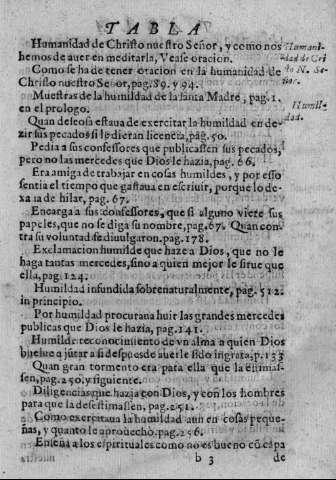 TABLA
Humanidad de Christo nuestro Señor, y como nos
hemos de auer en meditarla, Vease oracion.
Humani-
dad de Cri
sto N. Se-
ñor.
Como se ha de tener oracion en la humanidad de
Christo nuestro Señor, pag. 89. y 94.
Muestras de la humildad de la santa Madre, pag. 1.
en el prologo.
Humil-
dad.
Quan deseosa estaua de exercitar la humildad en de-
zir sus pecados si le dieran licencia, pag. 50.
Pedia a sus confessores que publicassen sus pecados,
pero no las mercedes que Dios le hazia, pag. 66.
Era amiga de trabajar en cosas humildes, y por esso
sentia el tiempo que gastaua en escriuir, porque lo de-
xaua de hilar, pag. 67.
Encarga a sus confessores, que si alguno viere sus
papeles, que no se diga su nombre, pag. 67. Quan con-
tra su voluntad se diuulgaron. pag. 178.
Exclamacion humilde que haze a Dios, que no le
haga tantas mercedes, sino a quien mejor le sirue que
ella, pag. 124.
Humildad infundida sobrenaturalmente, pag. 512.
in principio.
Por humildad procuraua huir las grandes mercedes
publicas que Dios le hazia, pag. 141.
Humilde reconocimiento de vn alma a quien Dios
buelue a jutar a si despues de auerle sido ingrata, p. 133
Quan gran tormento era para ella que la estimas-
sen, pag. 250. y siguiente.
Diligencias que hazia con Dios, y con los hombres
para que la desestimassen, pag. 251.
Como exercitaua la humildad aun en cosas peque-
ñas, y quanto le aprouecho. pag. 256.
Enseña a los espirituales como no es bueno cō capa
b 3 de